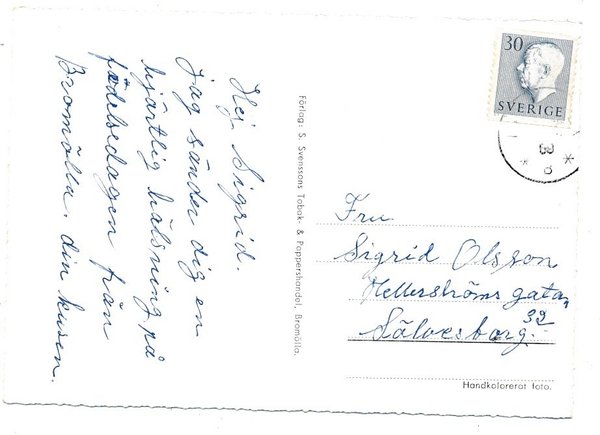 Hej Sigrid.
Jag sänder dig en
hjärtlig hälsning på
födelsedagen från
Bromölla. din kusin.
Förlag: S. Svenssons Tobak- & Pappershandel, Bromölla.
30
SVERIGE
Fru
Sigrid Olsson
Hellerströms gata,
39
Sölvesborg.
Handkolorerat foto.